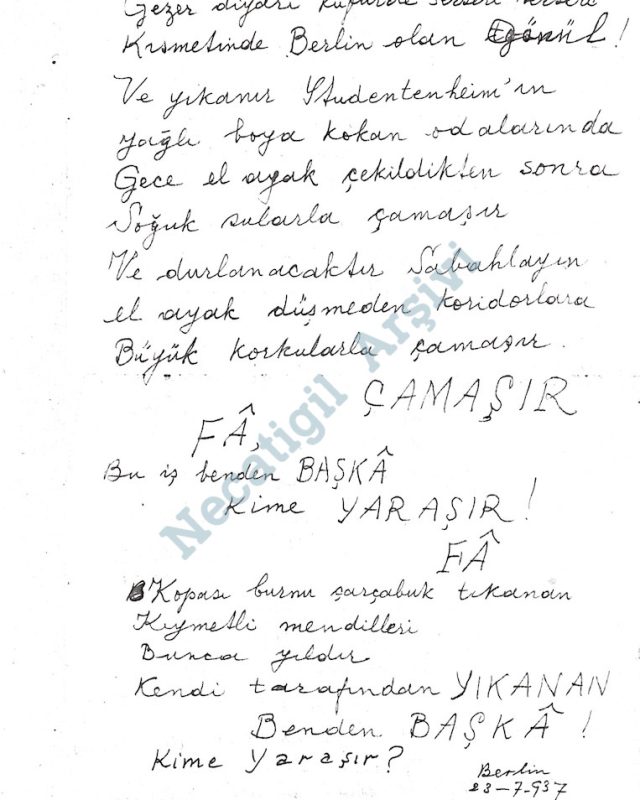 Gezer diyarı küfürde serseri serseri
Kısmetinde Berlin olan gönül!
Ve yıkanır Studentenheim'ın
yağlı boya kokan odalarında
Gece el ayak çekildikten sonra
Soğuk sularla çamaşır
Ve durlanacaktır Sabahlayın
el ayak düşmeden koridorlara
Büyük korkularla çamaşır.
ÇAMAŞIR
FÂ,
Bu iş benden BAŞKÂ
Kime YARAŞIR!
FÂ
Kopası burnu çarçabuk tıkanan
Kıymetli mendilleri
Bunca yıldır
Kendi tarafından YIKANAN
Benden BAŞKÂ!
Kime Yaraşır?
Berlin
23-7-937
Necatigil Arşivi